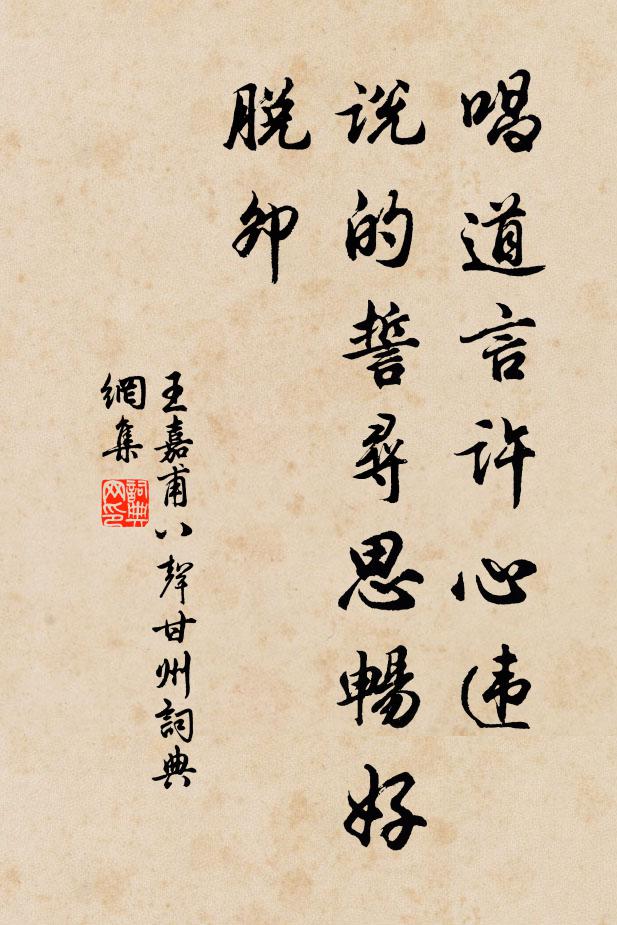 唱道言许心违
说的誓尋思暢好
脱卯
王嘉甫八聲甘州詞典
網集
詞典网印